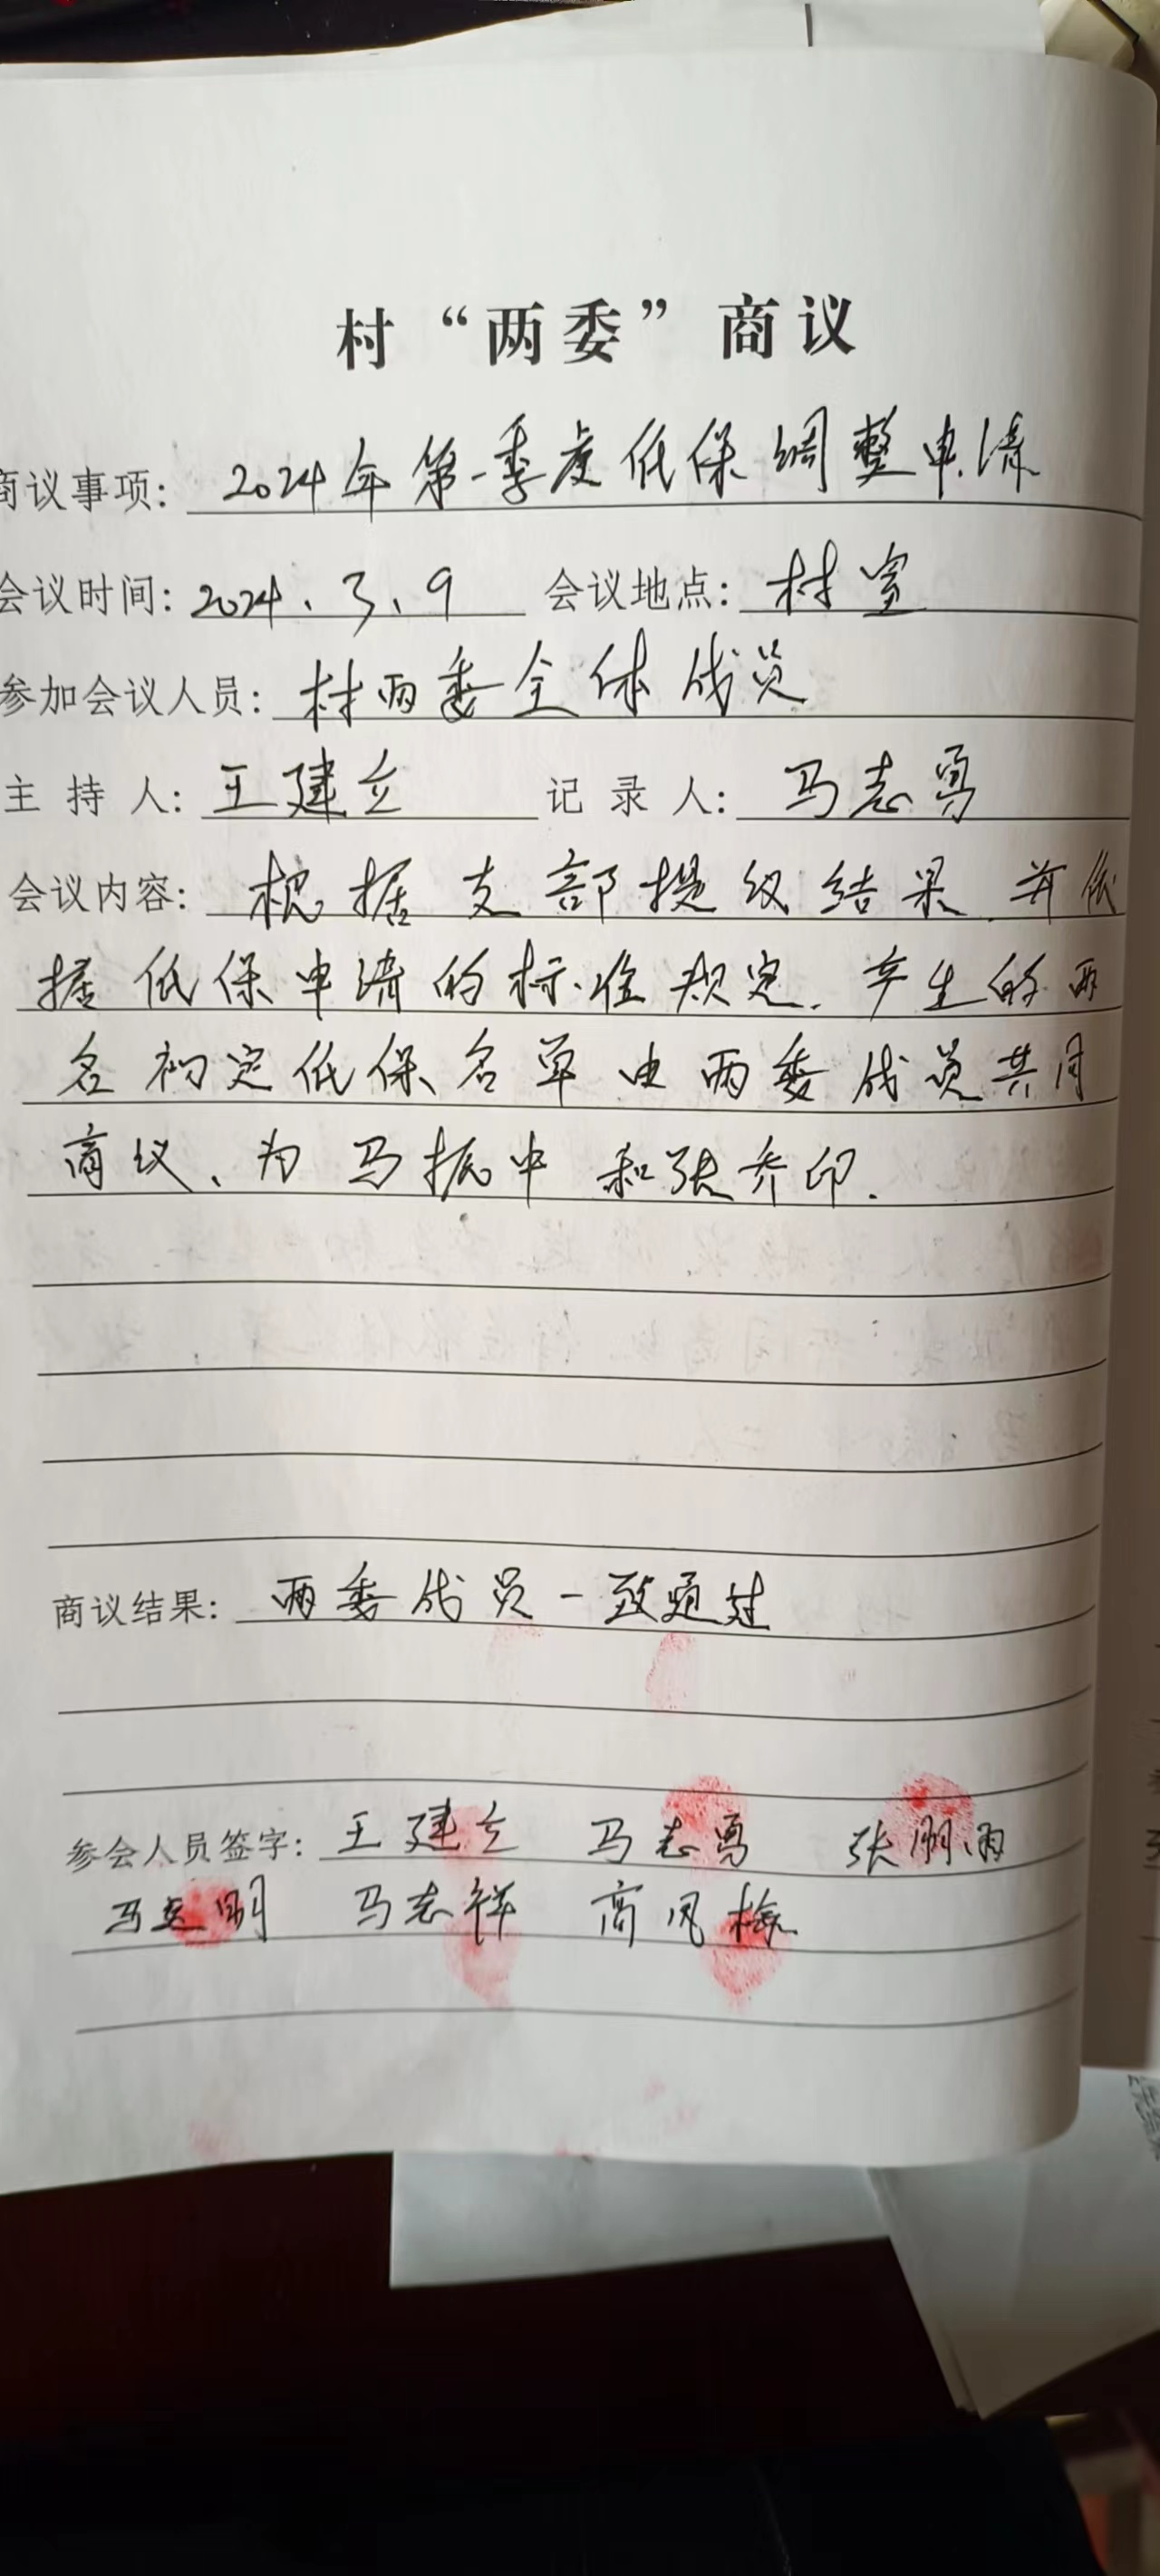 村“两委”商议
商议事项：2024年第一季度低保调整申请
会议时间：2024、3、9 会议地点：村室
参加会议人员：村两委全体成员
主持人：王建立 记录人：马志勇
会议内容：根据支部提议结果，并依
据低保申请的标准规定，产生的两
名初定低保名单由两委成员共同
商议、为马振中和张乔印.
商议结果：两委成员一致通过
参会人员签字：王建立 马志勇 张朋雨
马明 马志祥 高风